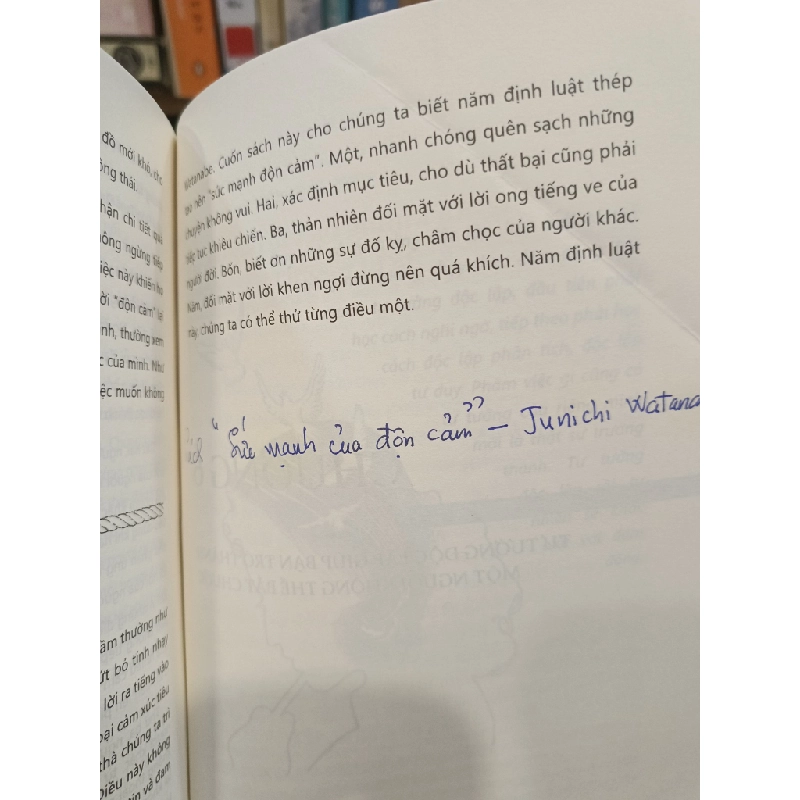 đồ mới khó, chi
ông thái.
hận chi tiết quá
hông ngừng tiếp
iệc này khiến họ
ời "độn cảm" lại
nh, thường xem
c của mình. Như
ệc muốn không
ầm thường như
ứt bỏ tính nhạy
lời ra tiếng vào
oại cảm xúc tiêu
thà chúng ta trì
Điều này không
tin về đam
Watanabe. Cuốn sách này cho chúng ta biết năm định luật thép
tạo nên "sức mạnh độn cảm". Một, nhanh chóng quên sạch những
chuyện không vui. Hai, xác định mục tiêu, cho dù thất bại cũng phải
tiếp tục khiêu chiến. Ba, thản nhiên đối mặt với lời ong tiếng ve của
người đời. Bốn, biết ơn những sự đố kỵ, châm chọc của người khác.
Năm, đối mặt với lời khen ngợi đừng nên quá khích. Năm định luật
này, chúng ta có thể thử từng điều một.
"Sức mạnh của độn cảm" – Junichi Watana